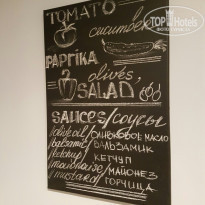 TOP HOTELS
TOMATO
cucumber
PAPRIKA
olives,
SALAD
SAUCES/СОУСЫ
/olive oil/ ОЛИВКОВОЕ МАСЛО
/balzamic/ БАЛЬЗАМИК
/ketchup/ КЕТЧУП
МАЙОНЕЗ
/mustard/ ГОРЧИЦА